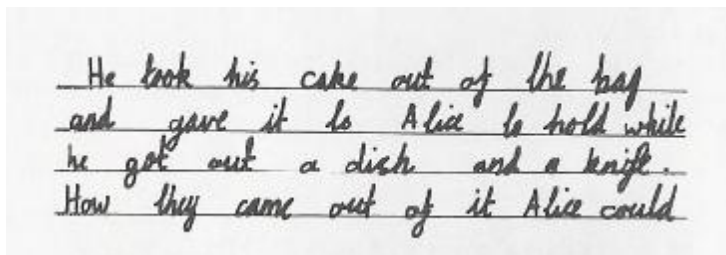 He took his cake out of the bag
and gave it to Alice to hold while
he got out a dish and a knife.
How they came out of it Alice could